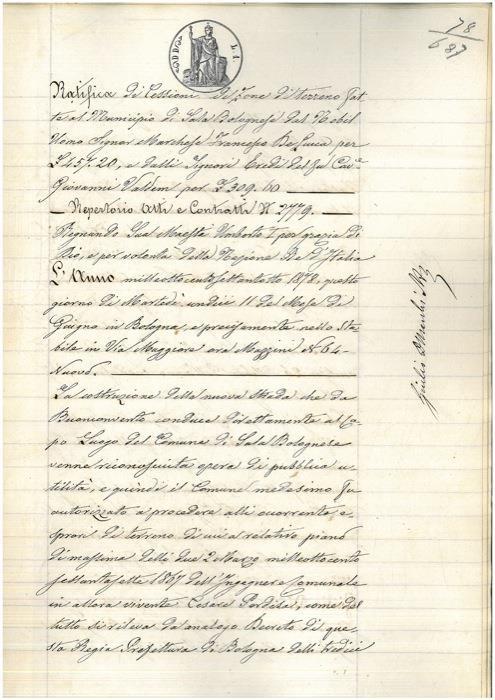 78
687
Ratifica di Cessioni di zone di terreno fat-
te al Municipio di Sala Bolognese dal Nobil
Uomo Signor Marchese Francesco De Luca per
£ 457.20, e dalli Signori Eredi del fu Cav.e
Giovanni per £ 309.60
Repertorio Atti e Contratti N° 2779.
Regnando Sua Maestà Umberto I per grazia di
Dio, e per volontà della Nazione Re d'Italia
L'Anno milleottocentosettantotto 1878, questo
giorno di Martedì undici 11 del Mese di
Giugno in Bologna, e precisamente nello Sta-
bile in Via Maggiore ora Mazzini N. 64
Nuovo.
La costruzione della nuova strada che da
Buonconvento conduce direttamente al Ca-
po Luogo del Comune di Sala Bolognese
venne riconosciuta opera di pubblica u-
tilità, e quindi il Comune medesimo fu
autorizzato a procedere alli occorrenti e-
spropri di terreno di cui al relativo piano
di massima delli due 2 Marzo milleottocento
sessantasette 1867 dell'Ingegnere Comunale
in allora vivente Cesare, come dal
tutto si rileva da analogo Decreto di que-
sta Regia Prefettura di Bologna delli tredici